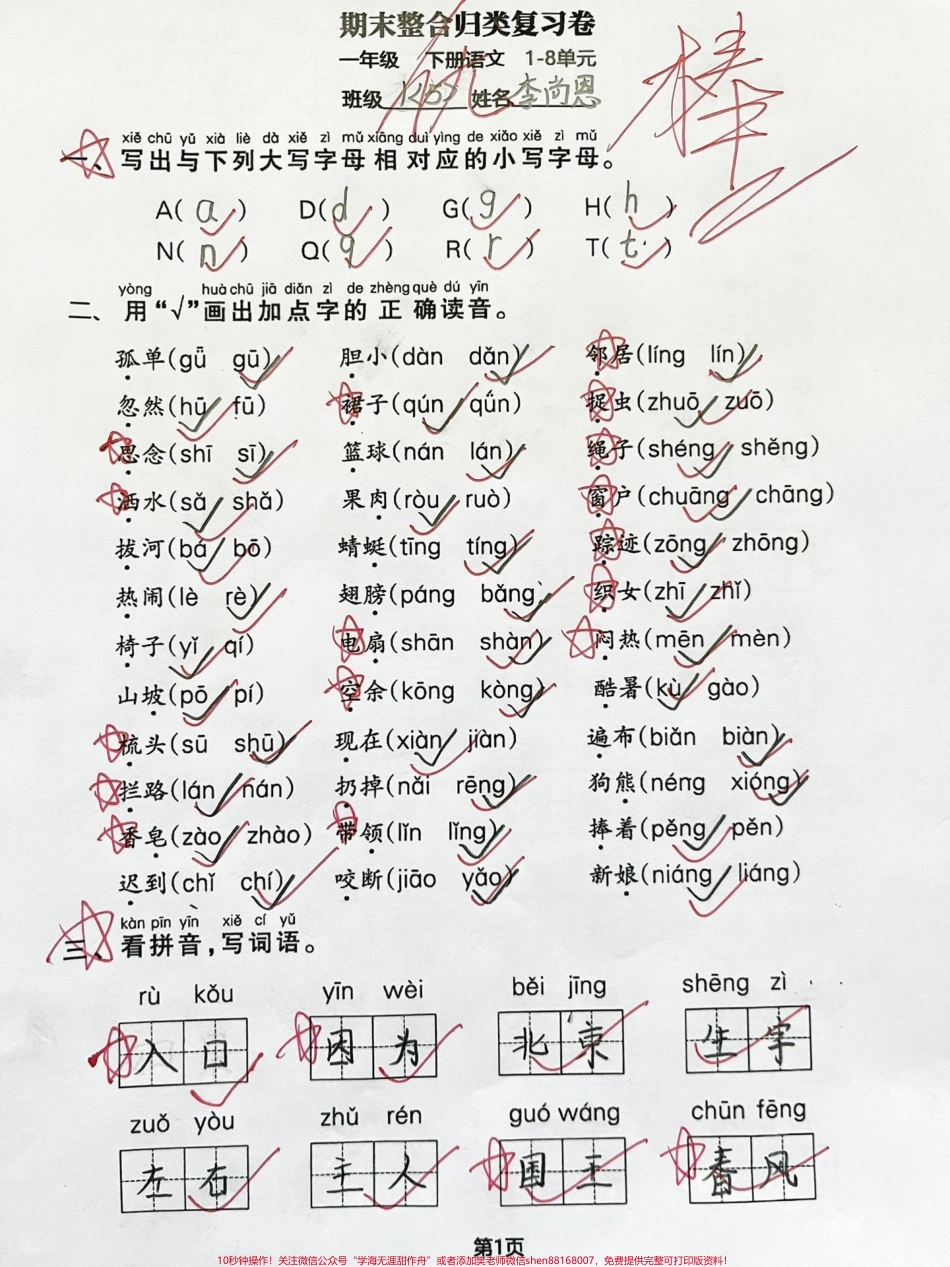 期末整合归类复习卷
一年级 下册语文 1-8单元
班级 1(5) 姓名 李尚恩
优 棒
xiě chū yǔ xià liè dà xiě zì mǔ xiāng duì yìng de xiǎo xiě zì mǔ
一、写出与下列大写字母相对应的小写字母。
A( a ) D( d ) G( g ) H( h )
N( n ) Q( q ) R( r ) T( t )
yòng huà chū jiā diǎn zì de zhèng què dú yīn
二、用“√”画出加点字的正确读音。
孤单(gǖ gū) 胆小(dàn dǎn) 邻居(líng lín)
忽然(hū fū) 裙子(qún qǘn) 捉虫(zhuō zuō)
思念(shī sī) 篮球(nán lán) 绳子(shéng shěng)
洒水(sǎ shǎ) 果肉(ròu ruò) 窗户(chuāng chāng)
拔河(bá bō) 蜻蜓(tīng tíng) 踪迹(zōng zhōng)
热闹(lè rè) 翅膀(páng bǎng) 织女(zhī zhǐ)
椅子(yǐ qí) 电扇(shān shàn) 闷热(mēn mèn)
山坡(pō pí) 空余(kōng kòng) 酷暑(kù gào)
梳头(sū shū) 现在(xiàn jiàn) 遍布(biǎn biàn)
拦路(lán nán) 扔掉(nǎi rēng) 狗熊(néng xióng)
香皂(zào zhào) 带领(lǐn lǐng) 捧着(pěng pěn)
迟到(chǐ chí) 咬断(jiāo yǎo) 新娘(niáng liáng)
kàn pīn yīn xiě cí yǔ
三、看拼音，写词语。
rù kǒu yīn wèi běi jīng shēng zì
入口 因为 北京 生字
zuǒ yòu zhǔ rén guó wáng chūn fēng
左右 主人 国王 春风
第1页
10秒钟操作！关注微信公众号“学海无涯甜作舟”或者添加樊老师微信shen88168007，免费提供完整可打印版资料！